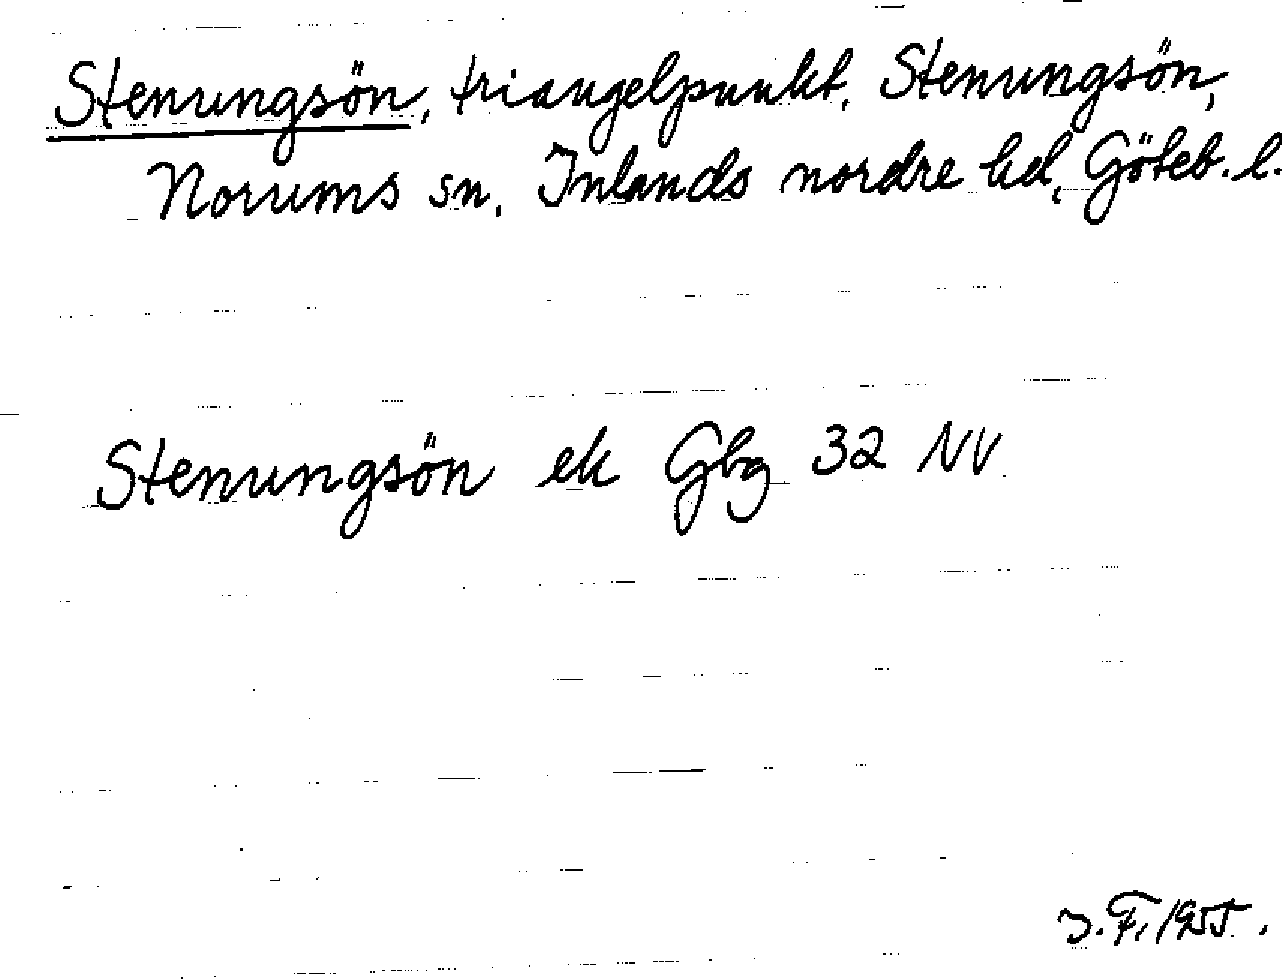 Stenungsön, triangelpunkt, Stenungsön,
Norums sn, Inlands nordre hd, Göteb. l.
Stenungsön ek Gbg 32 NV